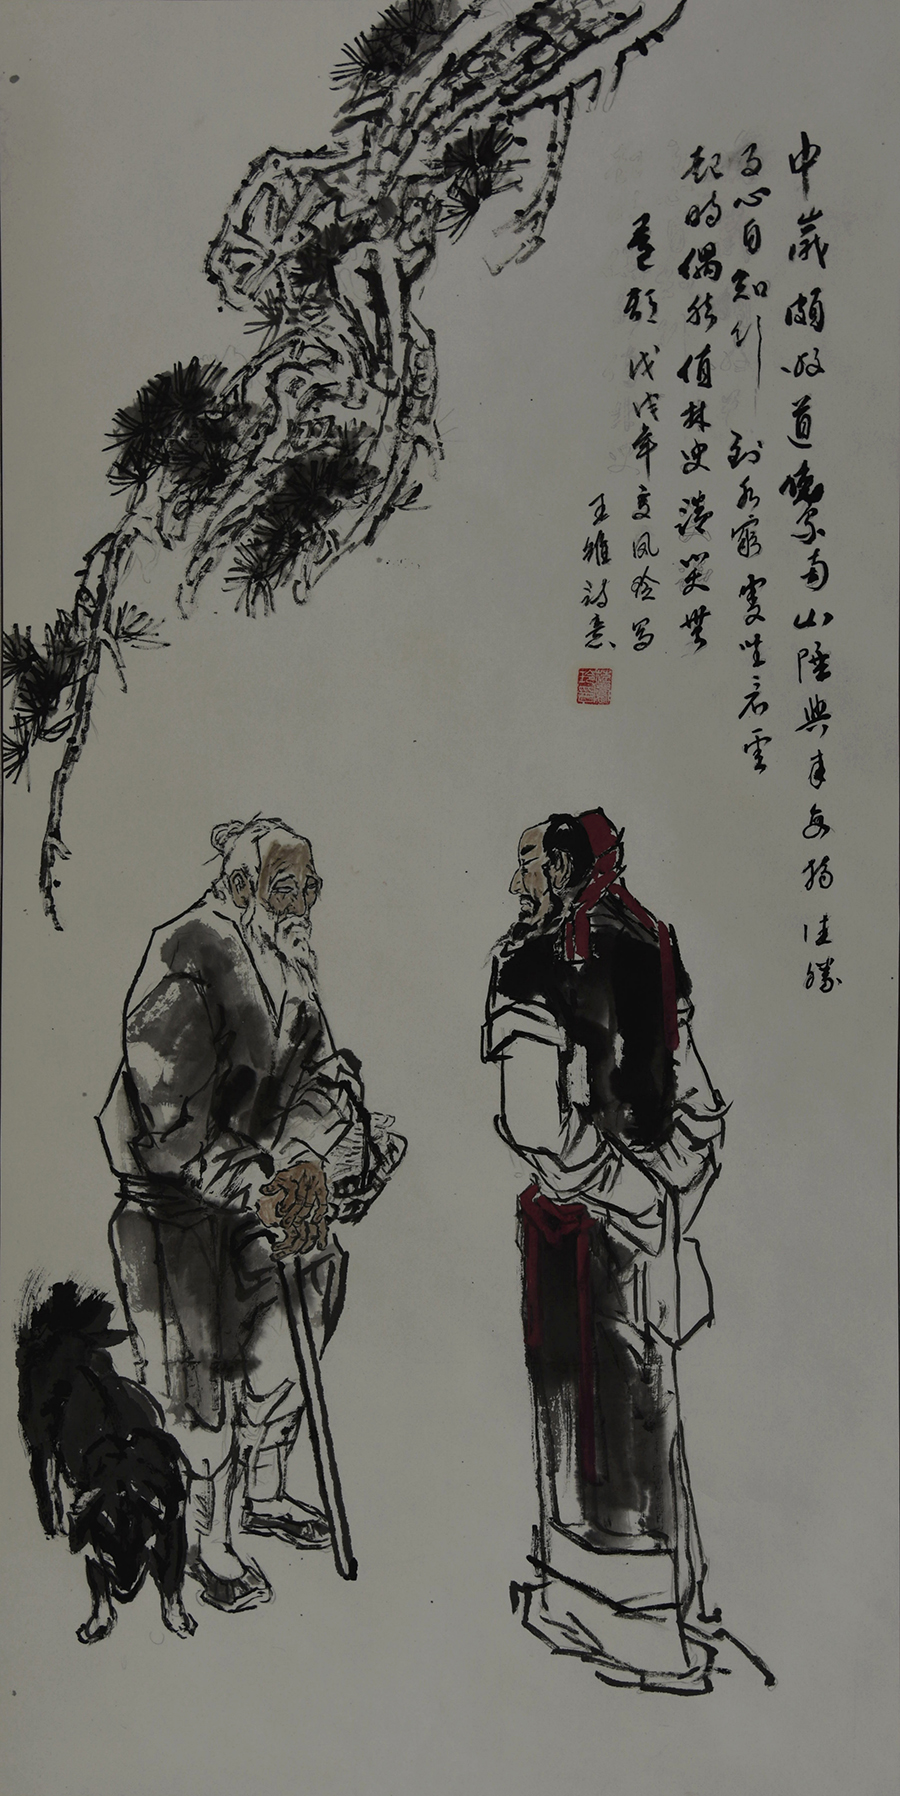 中歲頗好道晚家南山陲興來每獨往勝
事空自知行到水窮處坐看雲
起時偶然值林叟談笑無
還期 戊戌年夏凤玲写
王維詩意